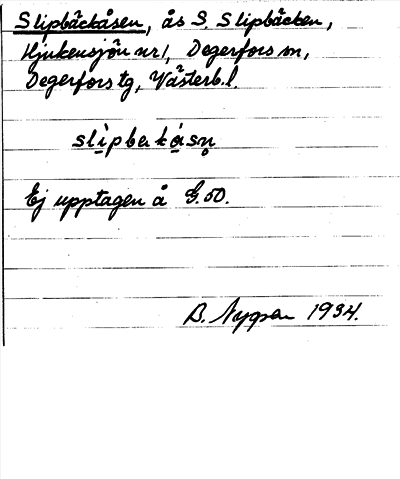 Slipbäckåsen, ås S. Slipbäcken,
Hjukensjön nr 1, Degerfors sn,
Degerfors tg, Västerb. l.
slìpbɛkásn̥
Ej upptagen å G. 50.
B. 1934.